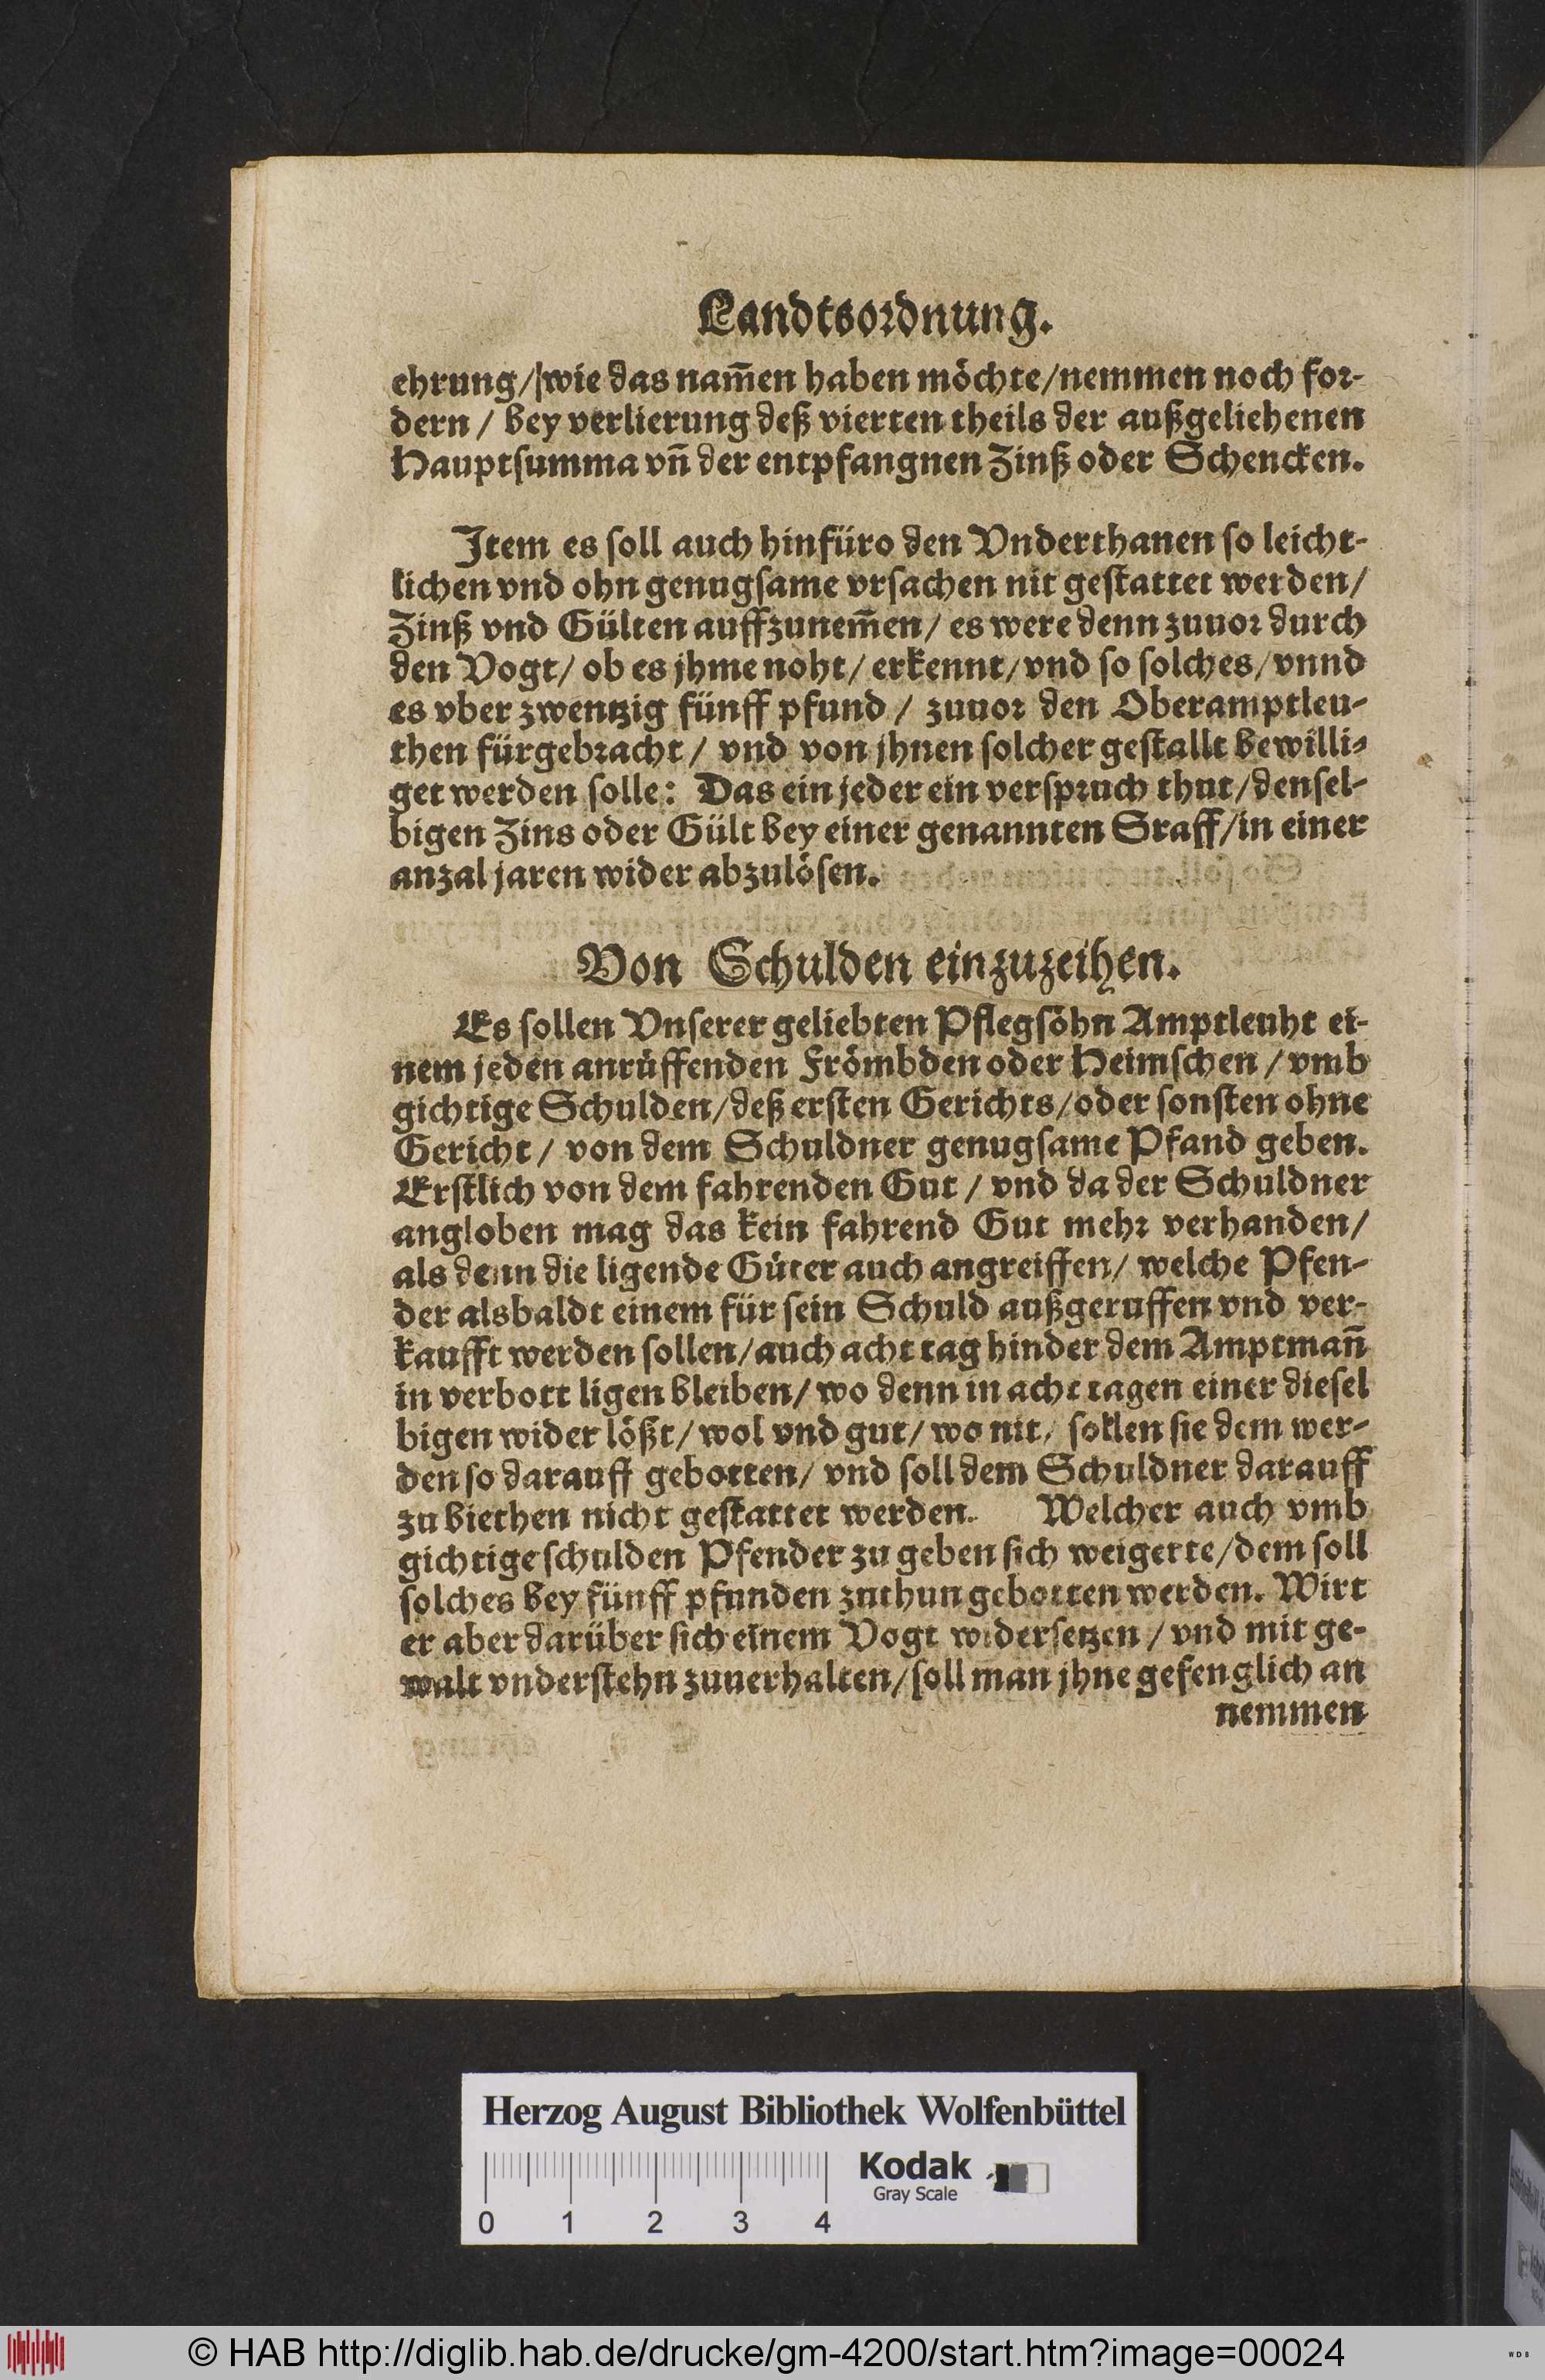 Landtsordnung.
ehrung/ wie das nam̅en haben möchte/nemmen noch for-
dern / bey verlierung deß vierten theils der außgeliehenen
Hauptsumma vn̅ der entpfangnen Zinß oder Schencken.
Item es soll auch hinfüro den Vnderthanen so leicht-
lichen vnd ohn genugsame vrsachen nit gestattet werden/
Zinß vnd Gülten auffzunem̅en/ es were denn zuuor durch
den Vogt/ ob es jhme noht/ erkennt/vnd so solches/vnnd
es vber zwentzig fünff pfund / zuuor den Oberamptleu-
then fürgebracht / vnd von jhnen solcher gestallt bewilli-
get werden solle: Das ein jeder ein verspruch thut/densel-
bigen Zins oder Gült bey einer genannten Sraff/in einer
anzal jaren wider abzulösen.
Von Schulden einzuzeihen.
Es sollen Vnserer geliebten Pflegsöhn Amptleuht ei-
nem jeden anrüffenden Frömbden oder Heimschen / vmb
gichtige Schulden/deß ersten Gerichts/oder sonsten ohne
Gericht / von dem Schuldner genugsame Pfand geben.
Erstlich von dem fahrenden Gut / vnd da der Schuldner
angloben mag das kein fahrend Gut mehr verhanden/
als denn die ligende Güter auch angreiffen/ welche Pfen-
der alsbaldt einem für sein Schuld außgeruffen vnd ver-
kaufft werden sollen/auch acht tag hinder dem Amptman̅
in verbott ligen bleiben/ wo denn in acht tagen einer diesel
bigen wider lößt/ wol vnd gut/ wo nit, sollen sie dem wer-
den so darauff gebotten/ vnd soll dem Schuldner darauff
zu biethen nicht gestattet werden. Welcher auch vmb
gichtige schulden Pfender zu geben sich weigerte/dem soll
solches bey fünff pfunden zuthun gebotten werden. Wirt
er aber darüber sich einem Vogt widersetzen / vnd mit ge-
walt vnderstehn zuuerhalten/soll man jhne gefenglich an
nemmen
Herzog August Bibliothek Wolfenbüttel
Kodak
Gray Scale
0 1 2 3 4
© HAB http://diglib.hab.de/drucke/gm-4200/start.htm?image=00024
WDB